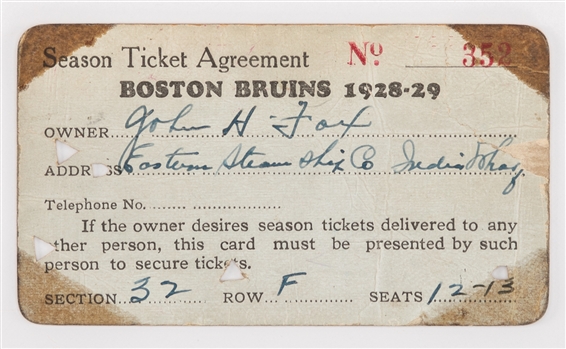 Season Ticket Agreement No 352
BOSTON BRUINS 1928-29
OWNER John H Fox
ADDRESS Eastern Steam Ship Co India Wharf
Telephone No.
If the owner desires season tickets delivered to any
other person, this card must be presented by such
person to secure tickets.
SECTION 32 ROW F SEATS 12-13